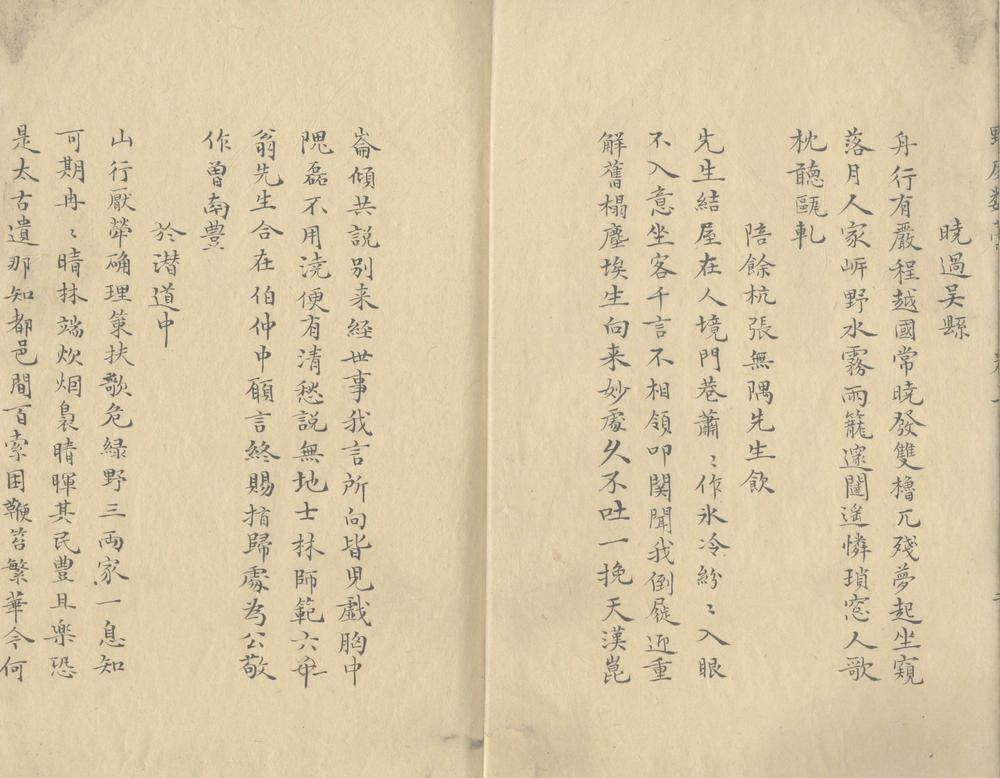 曉過吴縣
舟行有嚴程越國常曉發雙櫓兀殘夢起坐窺
落月人家㟁野水霧雨籠邃闥遙憐瑣窓人歌
枕聽鷗軋
陪餘杭張無隅先生飲
先生結屋在人境門巷蕭〻作氷冷紛〻入眼
不入意坐客千言不相領叩関聞我倒屣迎重
解舊榻塵埃生向来妙處久不吐一挽天漢崑
崙傾共説别来経世事我言所向皆児戱胸中
隗磊不用澆便有清愁説無地士林師範六
翁先生合在伯仲中願言終賜指歸處為公敬
作曾南豊
於潜道中
山行厭犖确理策扶歌危緑野三兩家一息知
可期冉〻晴林端炊烟裊晴暉其民豊且樂恐
是太古遺那知都邑間百索困鞭笞繁華今何